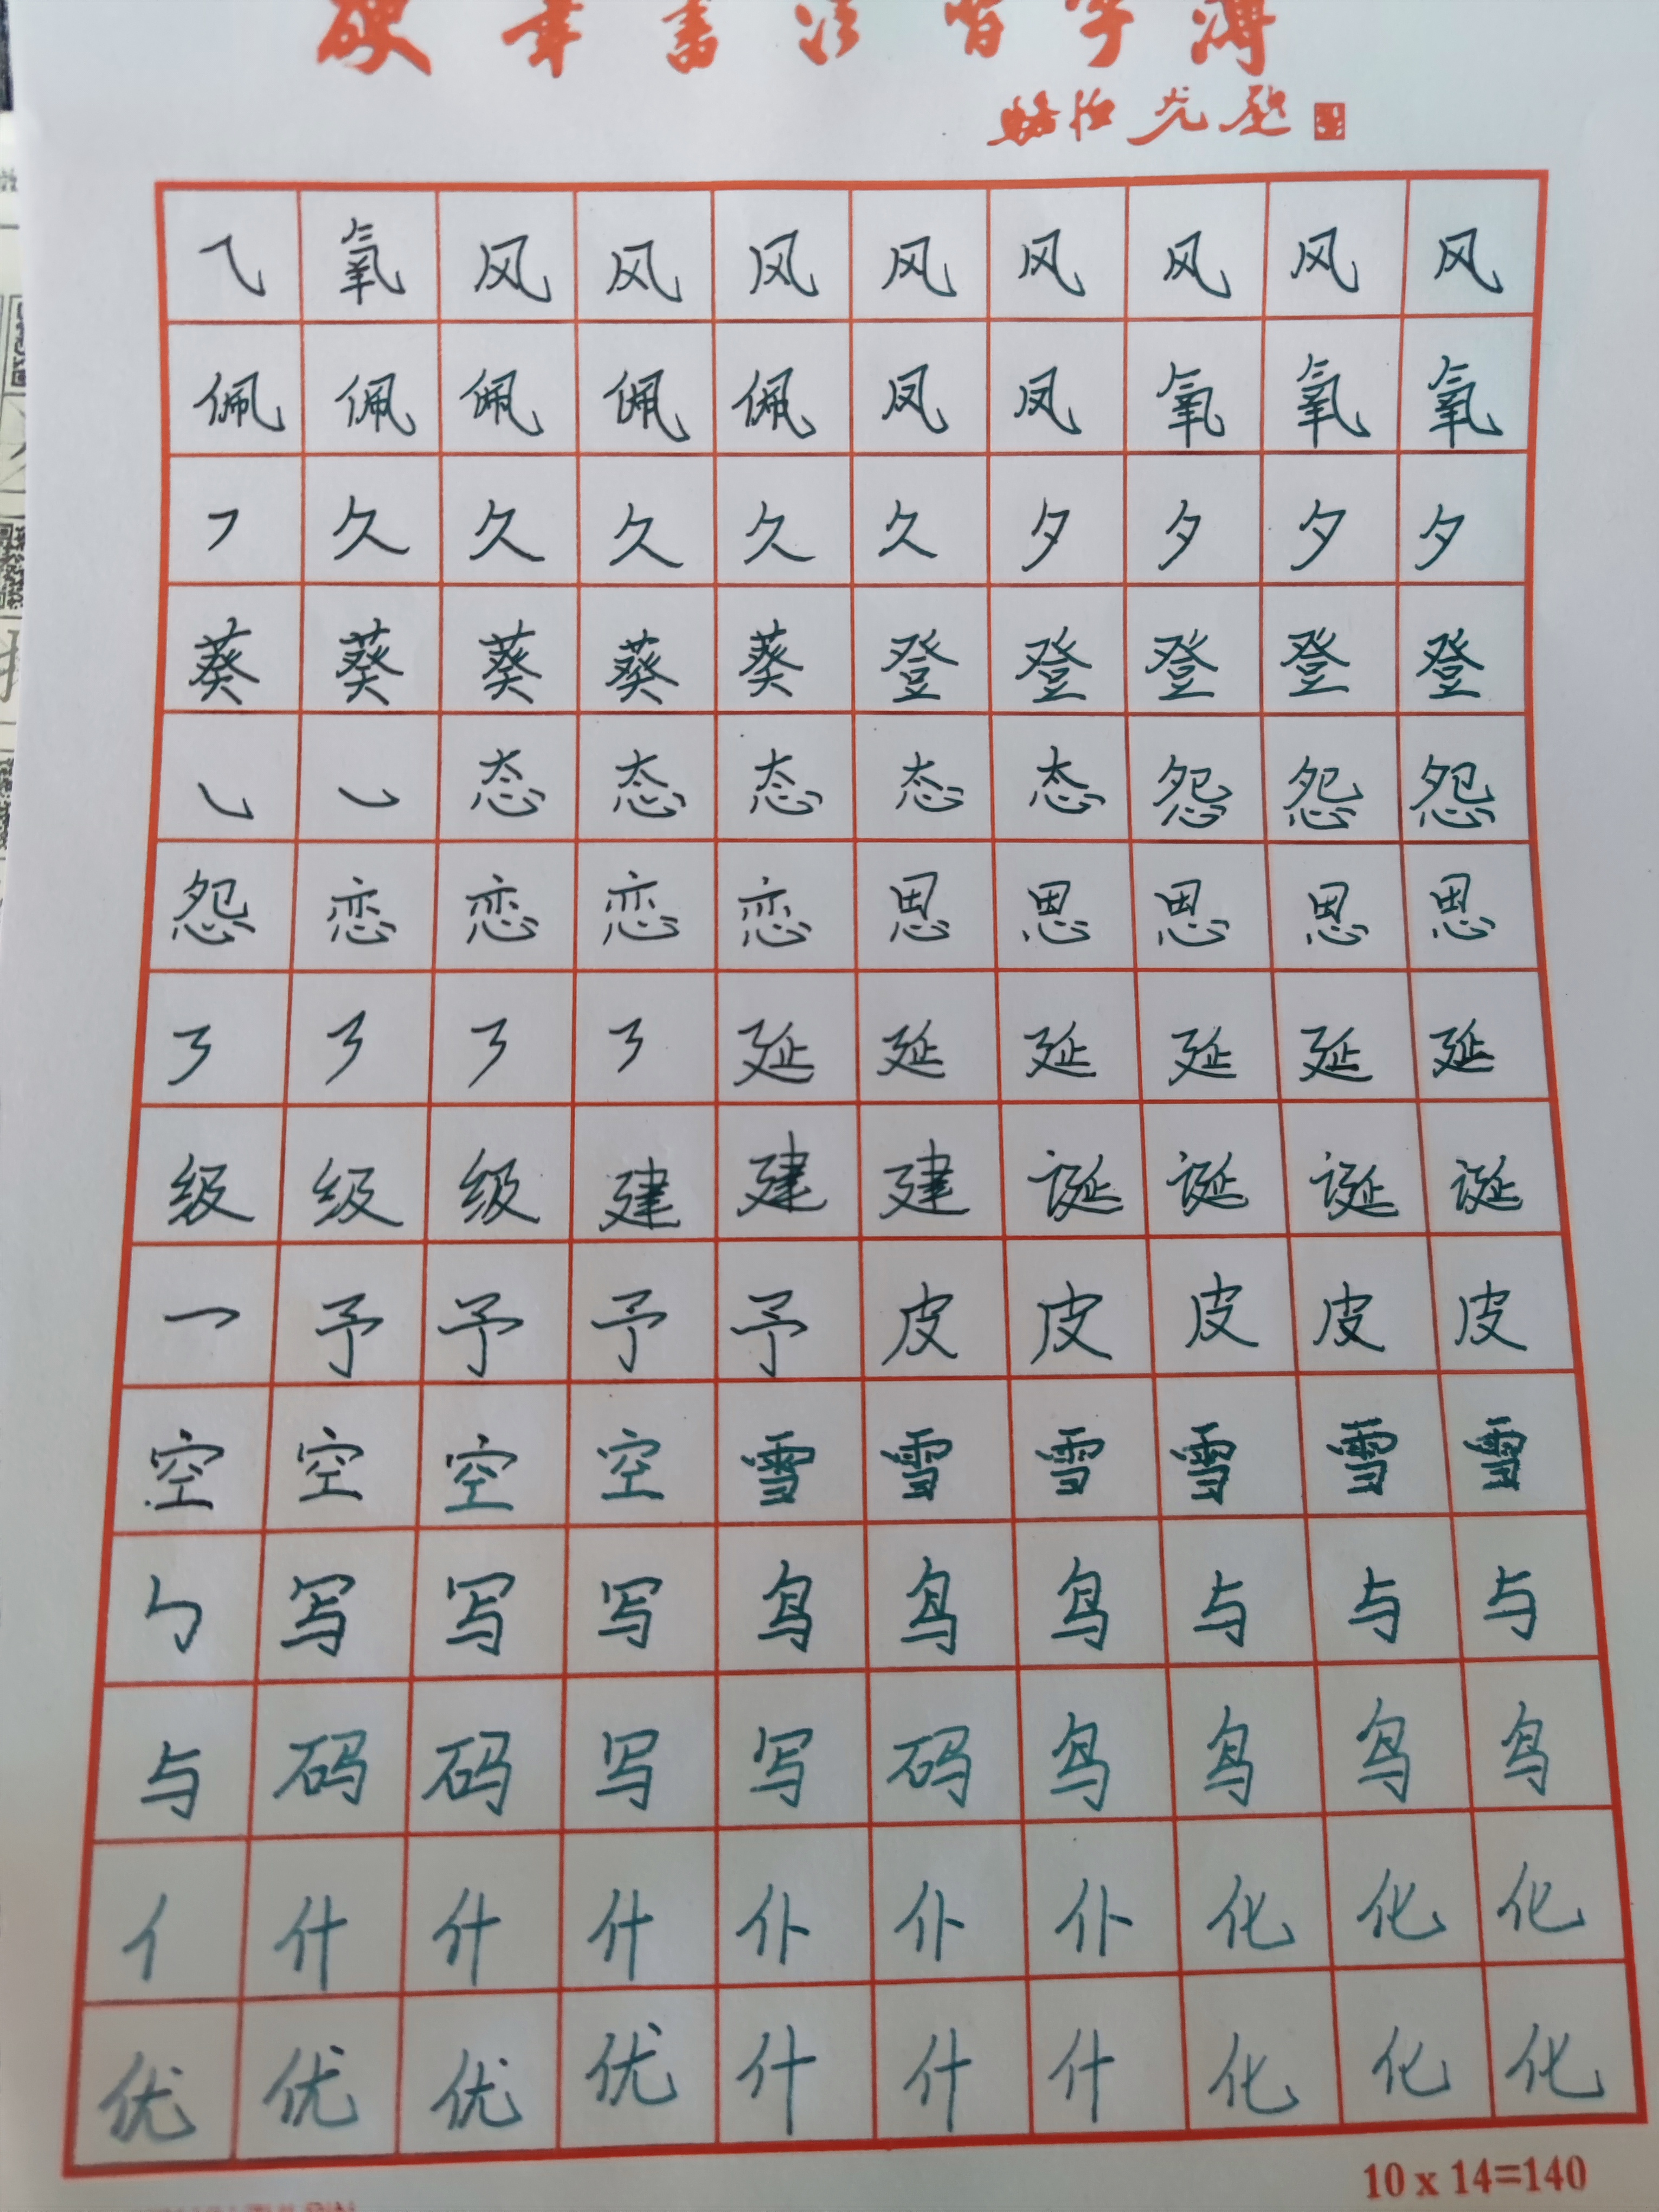 硬笔書法習字簿
乁 氧 风 风 风 风 风 风 风 风
佩 佩 佩 佩 佩 凤 凤 氧 氧 氧
㇇ 久 久 久 久 久 夕 夕 夕 夕
葵 葵 葵 葵 葵 登 登 登 登 登
㇃ ㇃ 态 态 态 态 态 怨 怨 怨
怨 恋 恋 恋 恋 恩 恩 恩 恩 恩
㇋ ㇋ ㇋ ㇋ 延 延 延 延 延 延
级 级 级 建 建 建 诞 诞 诞 诞
乛 予 予 予 予 皮 皮 皮 皮 皮
空 空 空 空 雪 雪 雪 雪 雪 雪
㇉ 写 写 写 鸟 鸟 鸟 与 与 与
与 码 码 写 写 码 鸟 鸟 鸟 鸟
亻 什 什 什 仆 仆 仆 化 化 化
优 优 优 优 什 什 什 化 化 化
10 x 14=140